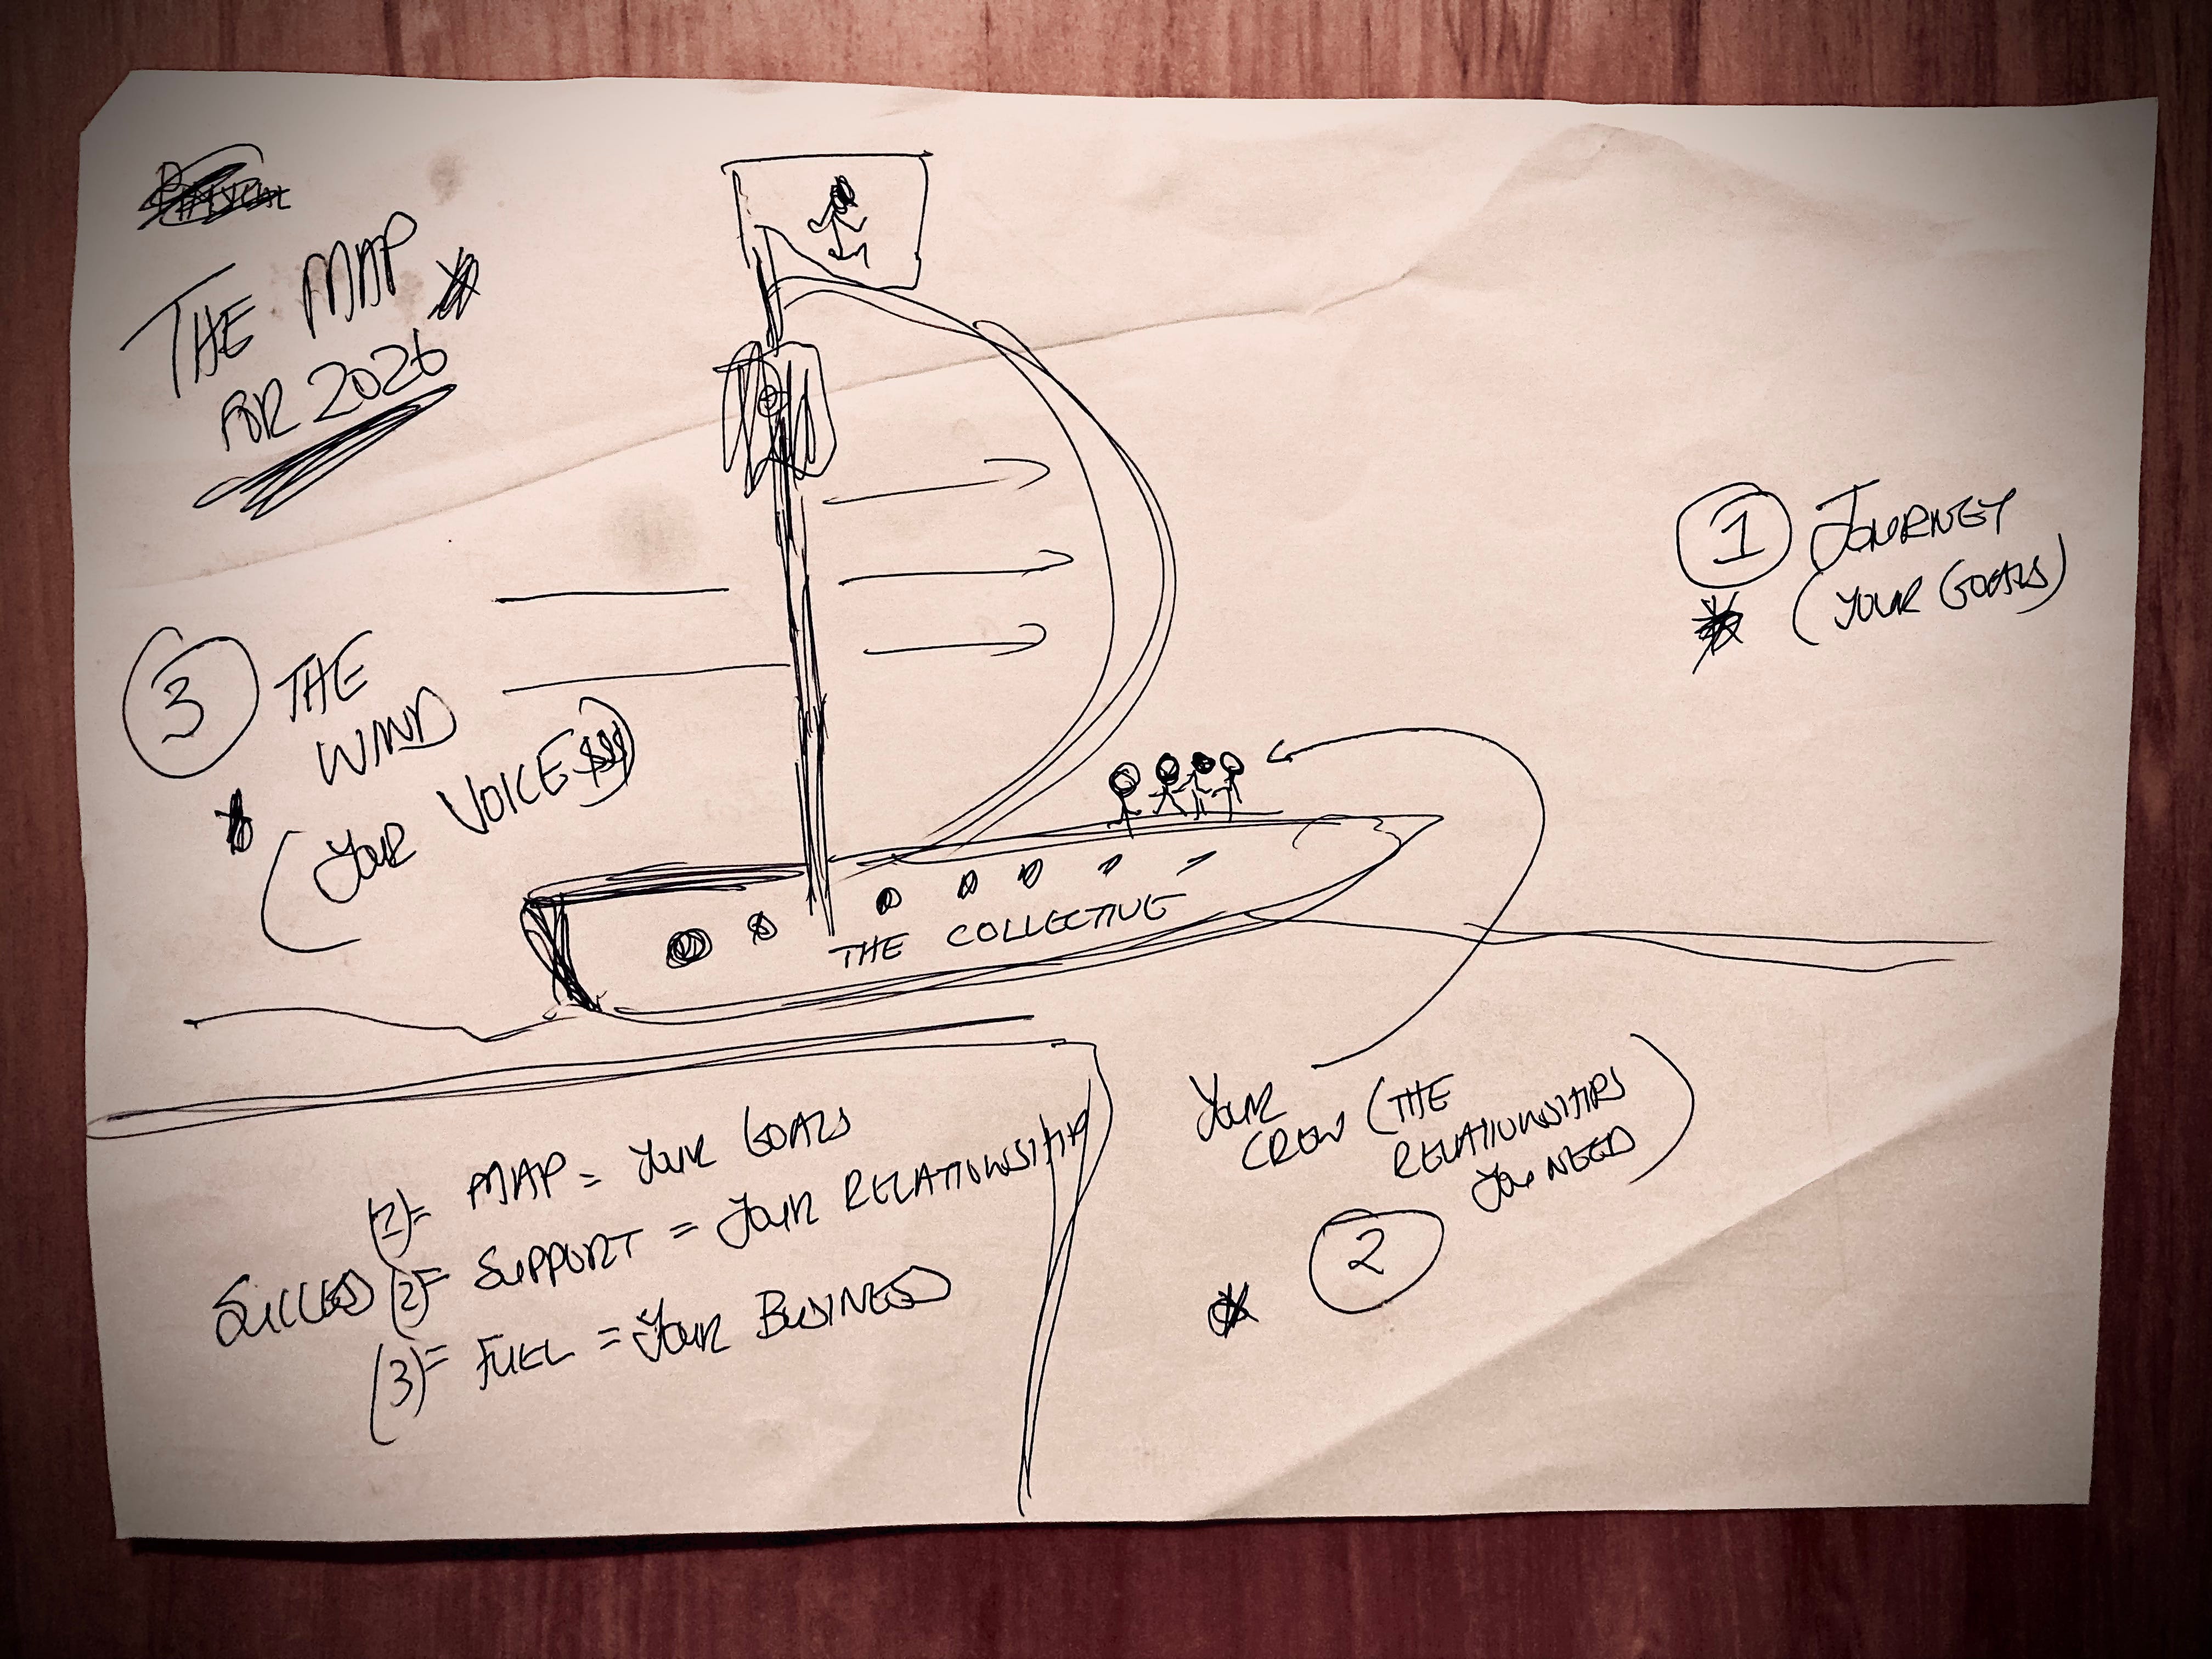 THE MAP
FOR 2026
1 JOURNEY
(YOUR GOALS)
3 THE
WIND
(YOUR VOICE)
THE COLLECTIVE
YOUR
CREW (THE
RELATIONSHIPS
YOU NEED)
2
(1)= MAP = YOUR GOALS
SUCCESS (2)= SUPPORT = YOUR RELATIONSHIP
(3)= FUEL = YOUR BUSINESS